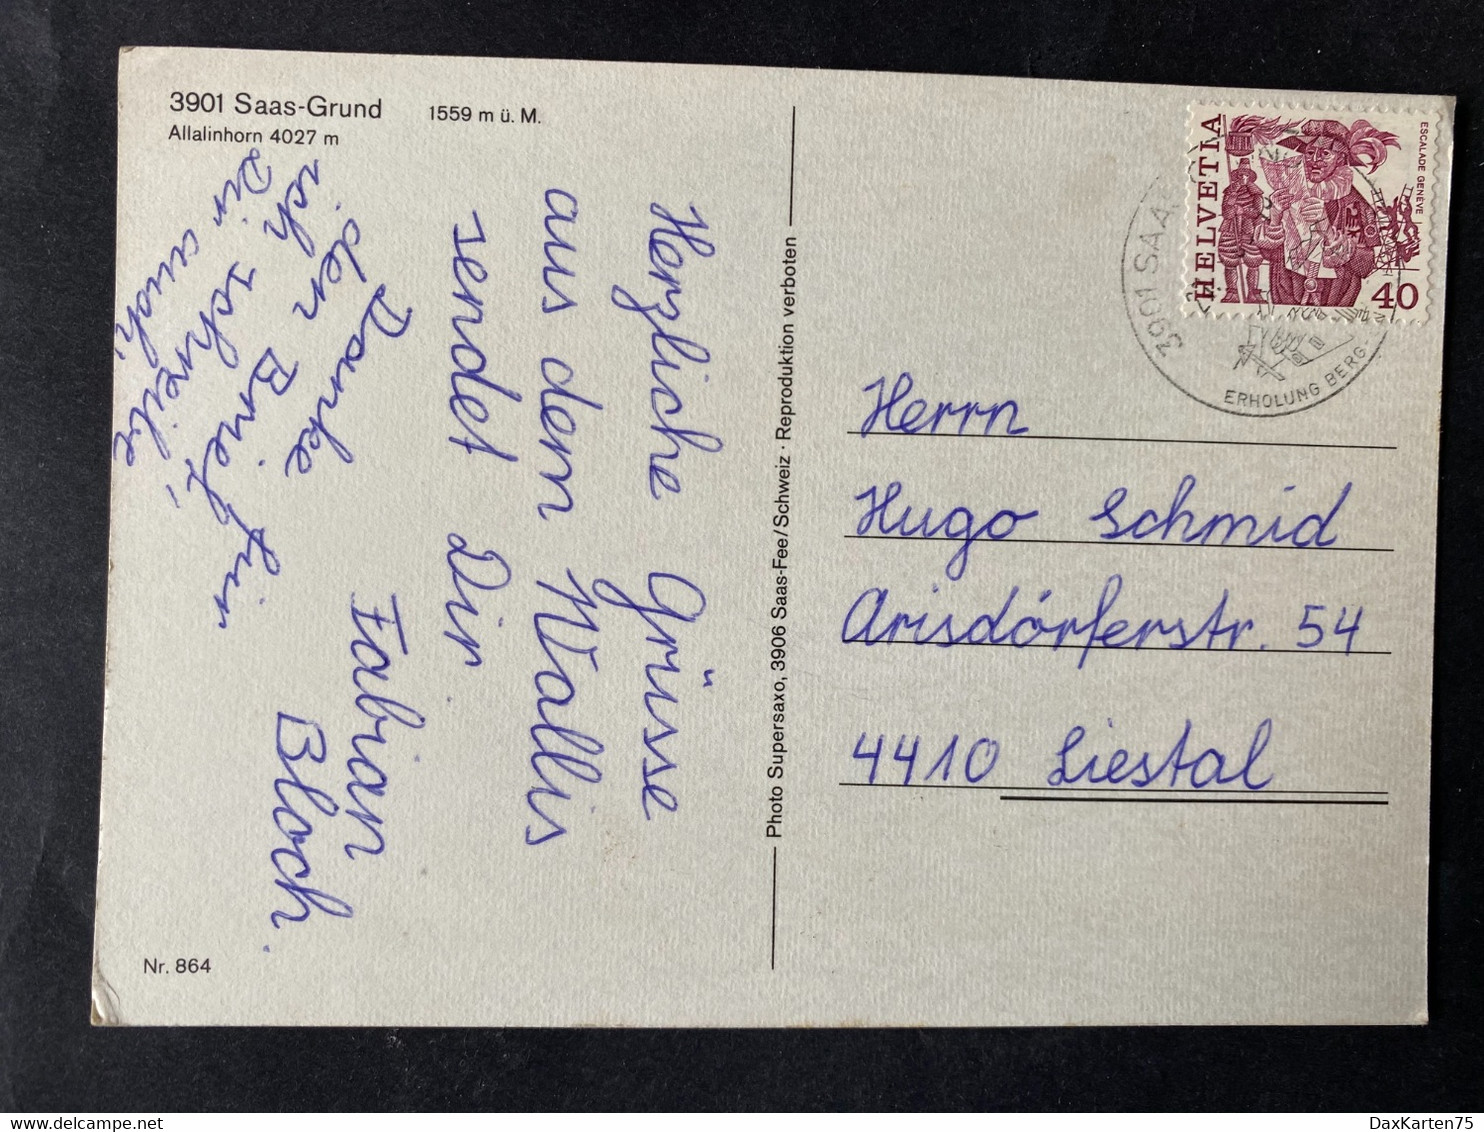 3901 Saas-Grund 1559 m ü. M.
Allalinhorn 4027 m
Herzliche Grüsse
aus dem Wallis
sendet Dir
Fabian
Bloch.
Danke
den Brief, für
ich schreibe
Dir auch!
Nr. 864
Photo Supersaxo, 3906 Saas-Fee/Schweiz · Reproduktion verboten
HELVETIA
ESCALADE GENÈVE
40
3901 SAAS
ERHOLUNG BERG-
Herrn
Hugo Schmid
Arisdörferstr. 54
4410 Liestal
DaxKarten75